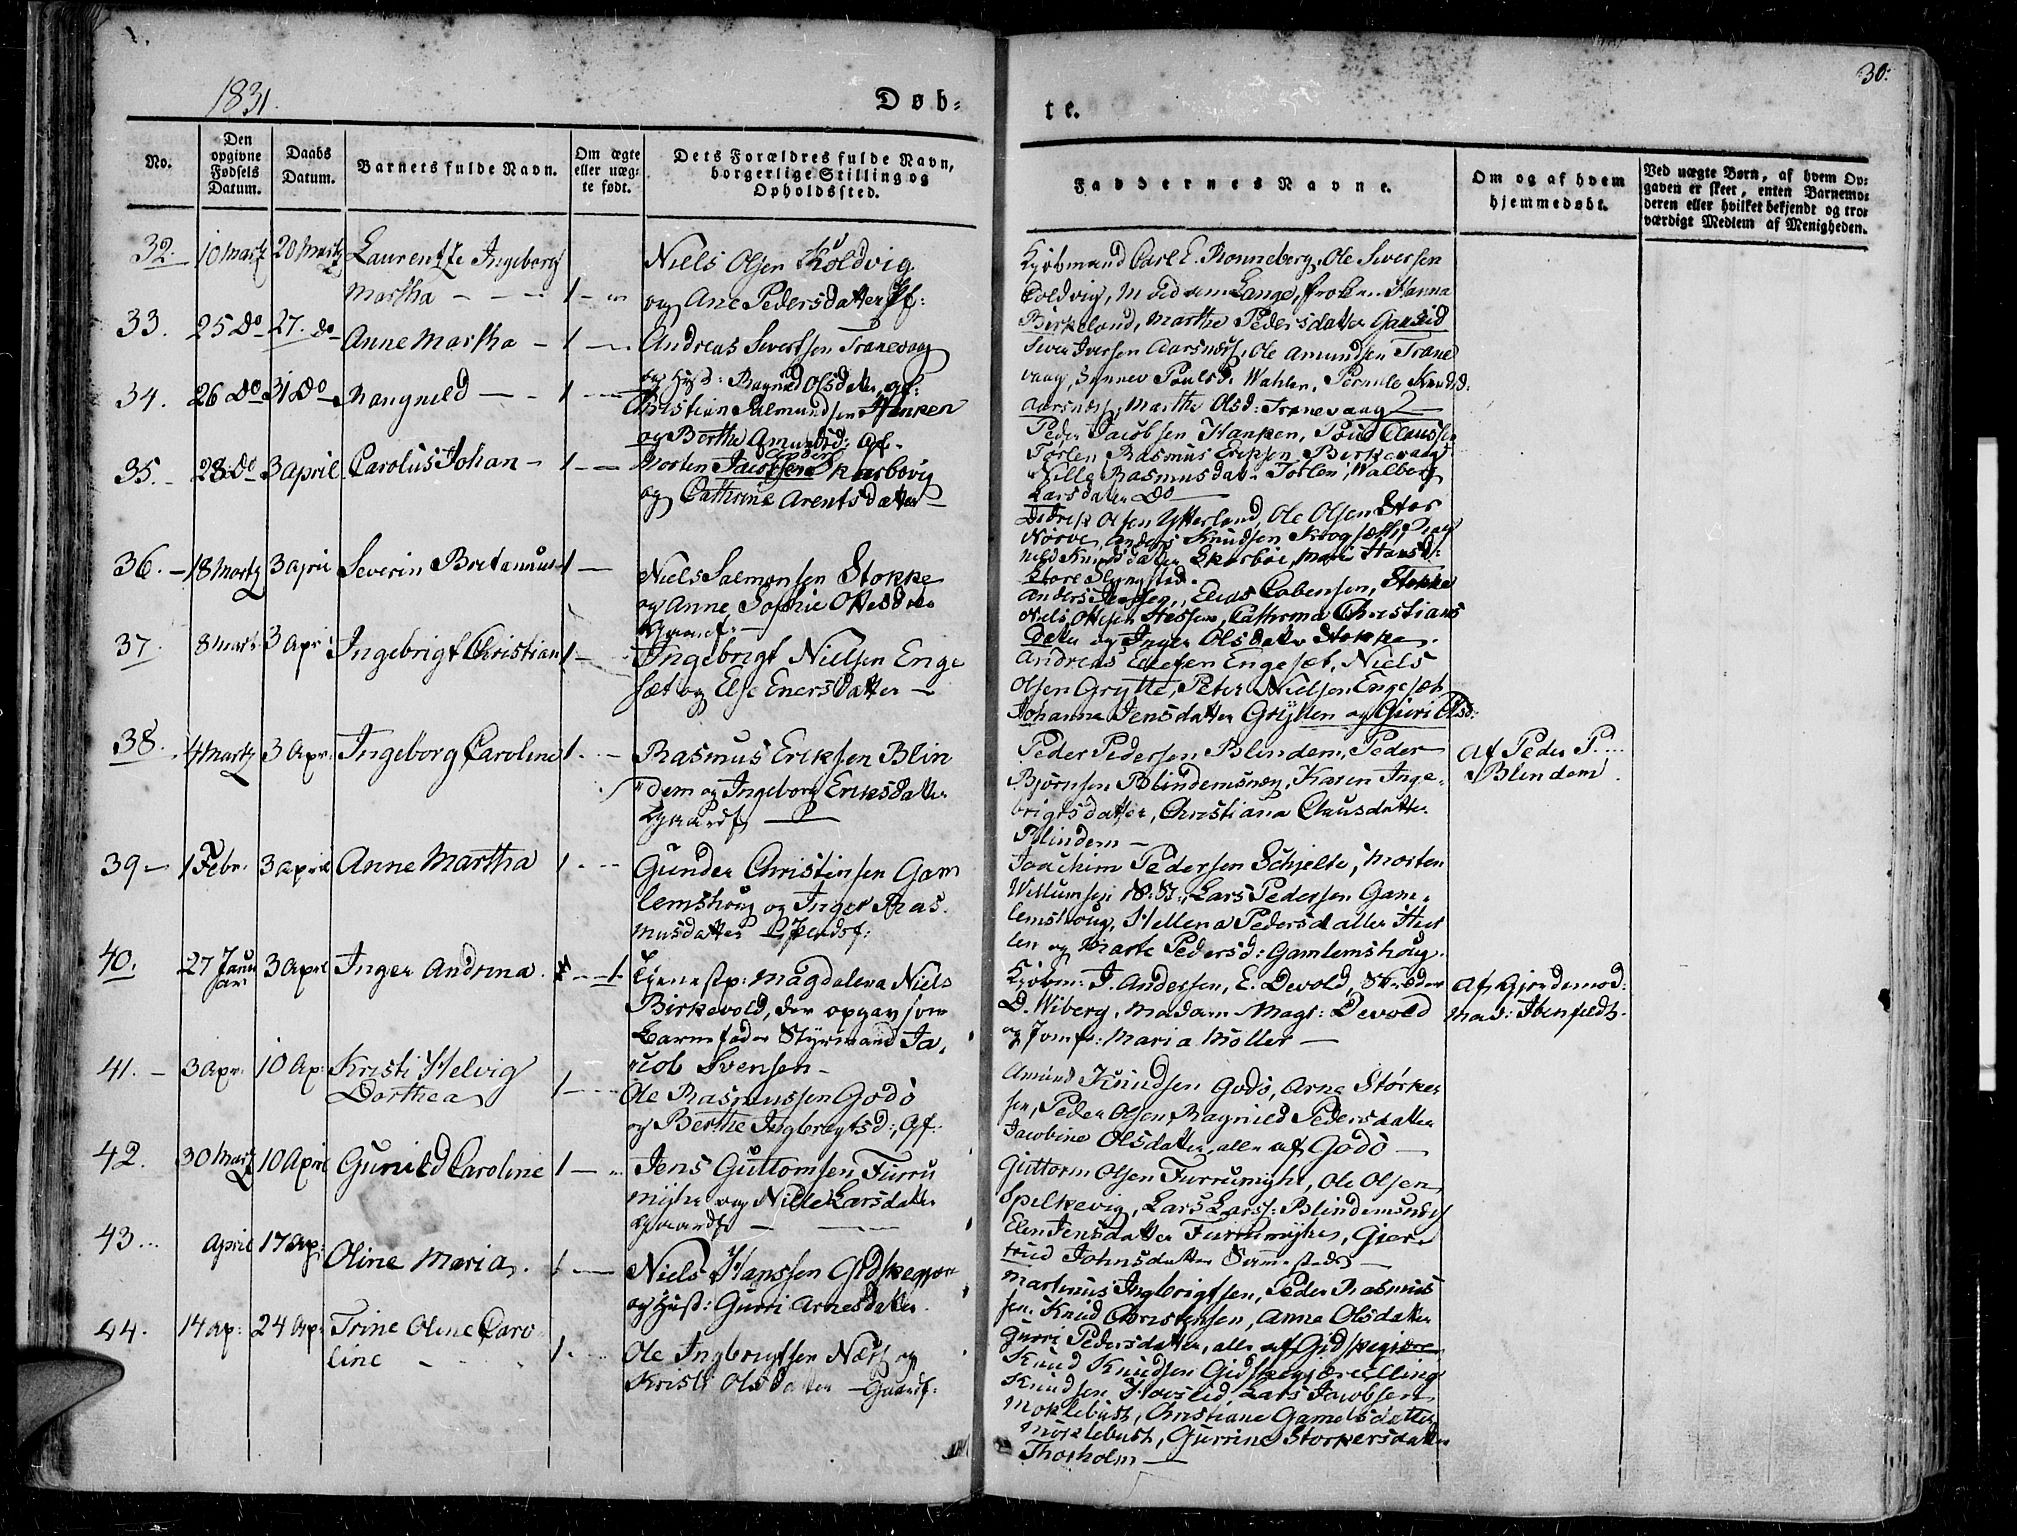 1831.
Døb-
te.
30.
No.
Den opgivne Fødsels Datum.
Daabs Datum.
Barnets fulde Navn.
Om ægte eller uæg-te født.
Dets Forældres fulde Navn, borgerlige Stilling og Opholdssted.
Faddernes Navne.
Om og af hvem hjemmedøbt.
Ved uægte Børn, af hvem Op-gaven er skeet, enten Barnemo-deren eller hvilket bekjendt og tro-værdigt Medlem af Menigheden.
32. 10 Martz 20 Martz Laurentze Ingeborg
Martha - - - 1 -
Niels Olsen Koldvig
og Ane Pedersdatter
Kjøbmand Carl E. Rønneberg, Ole Siversen
Coldvig, Madame Lange, frøken Hanna
Birkeland, Marthe Pedersdatter
33. 25 Do 27. do Anne Martha - 1 -
Andreas Severtsen Tranevaag
og Hust: Ragnild Olsdatter, gf:
Siver Iversen Aarsnes, Ole Amundsen Trane
vaag, Synnev Poulsd. Wahlen, Pernele Knudsd:
Aarsnes, Marthe Olsd: Tranevaag
34. 26 Do 31 Do Rangnild - - 1 -
Christian Salmundsen Hanken
og Berthe Amundsd: gf.
Peder Jacobsen Hanken, Poul Claussen
Torlen Rasmus Eriksen Birkevaag
Nille Rasmusdat. Torlen, Walborg
Larsdatter Do
35. 28 Do 3 April Carolus Johan - 1 -
Morten Jacobsen Skarbøvig
og Cathrine Arentsdatter
Didrik Olsen Ytterland, Ole Olsen Stor
Nørve, Anders Knudsen Skogsæth, Rag
nild Knudsdatter Skarbøe, Mari Hansd:
Store Slyngstad.
36. - 18 Martz 3 April Severin Britanus 1 -
Niels Salmonsen Stokke
og Anne Sophie Ottesdatter
Gaardf. -
Anders Jenssen, Elias Cobensen, Stokke
Niels Ottesen Hessen, Cathrina Christians
Datter og Inger Olsdatter Stokke.
37. 8 Mart. 3 Apr: Ingebrigt Christian 1 -
Ingebrigt Nielsen Enge
sæt og Else Enersdatter -
Andreas Elefsen Engesæt, Niels
Olsen Grytte, Peter Nielsen Engesæt
Johanna Jensdatter Grytten og Guri Olsd:
38. 4 Martz 3 Apr. Ingeborg Caroline 1 -
Rasmus Eriksen Blin
dem og Ingeborg Eriksdatter
Gaardf
Peder Pedersen Blindem, Peder
Bjørnsen Blindemsnes, Karen Inge-
brigtsdatter, Christiana Clausdatter
Blindem -
Af Peder P.
Blendem
39 - 1 Febr. 3 April Anne Martha 1 -
Gunder Christensen Gam
lemshoug og Inger Ras-
musdatter
Joachim Pedersen Schjelte, Morten
Willumsen, Lars Pedersen Gam-
lemshoug, Hellena Pedersdatter
og Marte Pedersd: Gamlemshoug.
40. 27 Januar 3 April Inger Andrina. - 1.
Tjenestp: Magdalena Niels
Birkevold, der opgav som
Barnefader Styrmand Ja-
cob Svensen -
Kjøbm: J. Andersen, E. Devold, Skræder
D. Wiberg, Madam Magt: Devold
og Jomf: Maria Møller -
Af Gjordemod:
Mad: Ibenfeldt.
41. - 3 Apr. 10 Ap: Kristi Helvig
Dorthea 1 -
Ole Rasmussen Godø
og Berthe Ingbregtsd:, gf.
Amund Knudsen Godø, Arne Størker
sen, Peder Olsen, Ragnild Pedersdatter
Jacobine Olsdatter, alle af Godø -
42. 30 Martz 10 April Gunild Caroline 1 -
Jens Guttomsen Furru
myhr og Nille Larsdatter
Gaardf -
Guttorm Olsen Furrumyhr, Ole Olsen
Spelkevig, Lars Larss: Blindemsnes
Elen Jensdatter Furrumyhr, Gier
trud Johnsdatter Sammesteds -
43. April 17 Ap: Oline Maria. 1 -
Niels Hanssen Gidskegjøre
og Hust: Gurri Arnesdatter.
Martinus Ingbrigtsen, Peder Rasmus
sen. Knud Christensen, Anna Olsdatter
Gurri Pedersdatter, alle af Gidskegjøre
44. 14 Ap: 24 Ap: Trine Oline Caro
line - 1.
Ole Ingbrigtsen Næss og
Kristi Olsdatter - Gaardf.
Knud Knudsen Gidskegjøre, Elling
Knudsen Hovslid Lars Jacobsen
Moklebust, Christiane Gamelsdatter
Moklebust, Gurrine Storkersdatter
Thorholm -